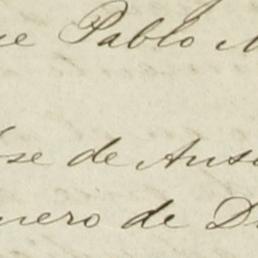 ue Pablo M
se de Anso
nero de D